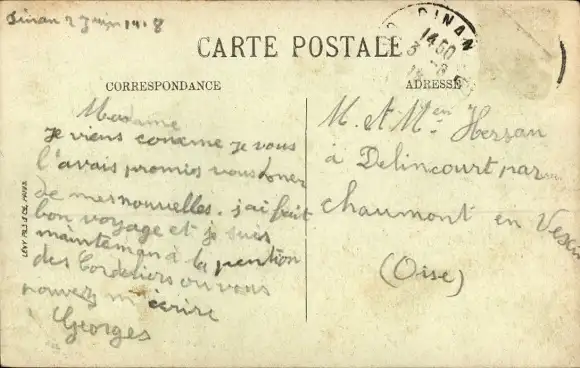 Dinan 2 Juin 1918
DINAN
1450
3-6
CARTE POSTALE
CORRESPONDANCE
ADRESSE
Madame
je viens comme je vous
l'avais promis vous doner
de mes nouvelles. j'ai fait
bon voyage et je suis
maintenan à la pention
des Cordeliers ou vous
pouvez m'écrire
Georges
M. et Men Herran
à Delincourt par
chaumont en Vexin
(Oise)
LÉVY FILS & CIE, PARIS